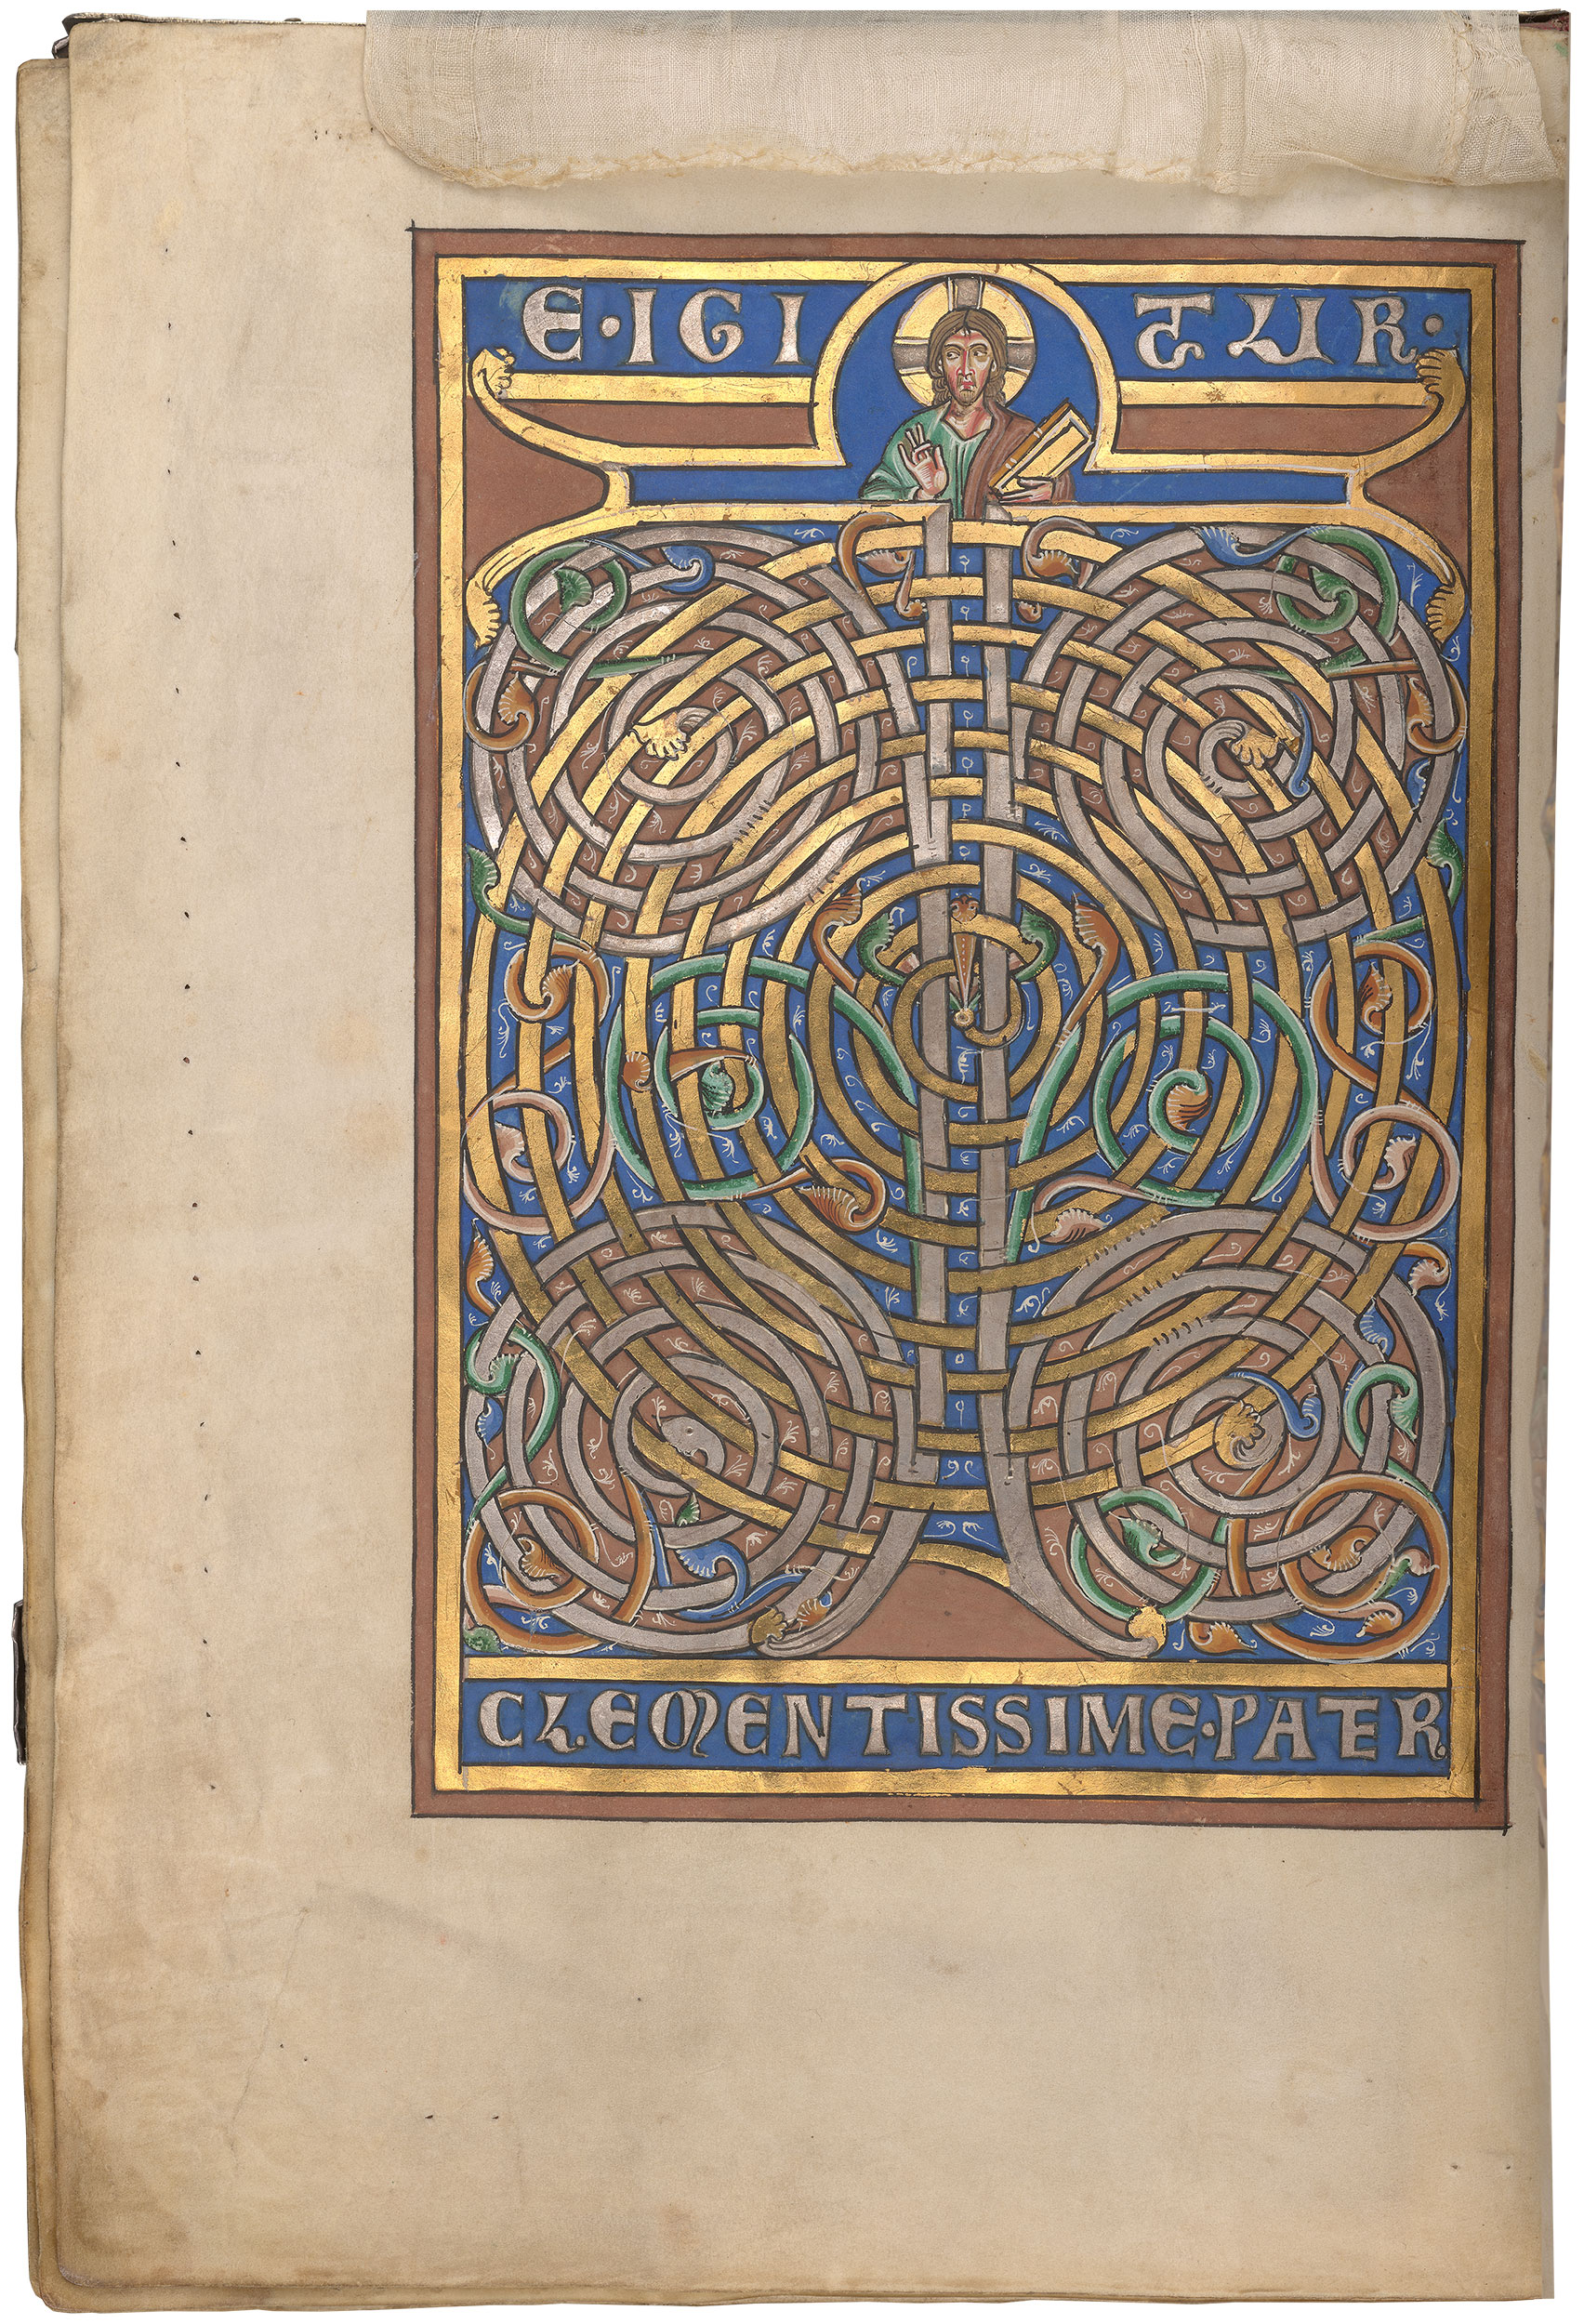 E·IGI TUR·
CLEMENTISSIME·PATER